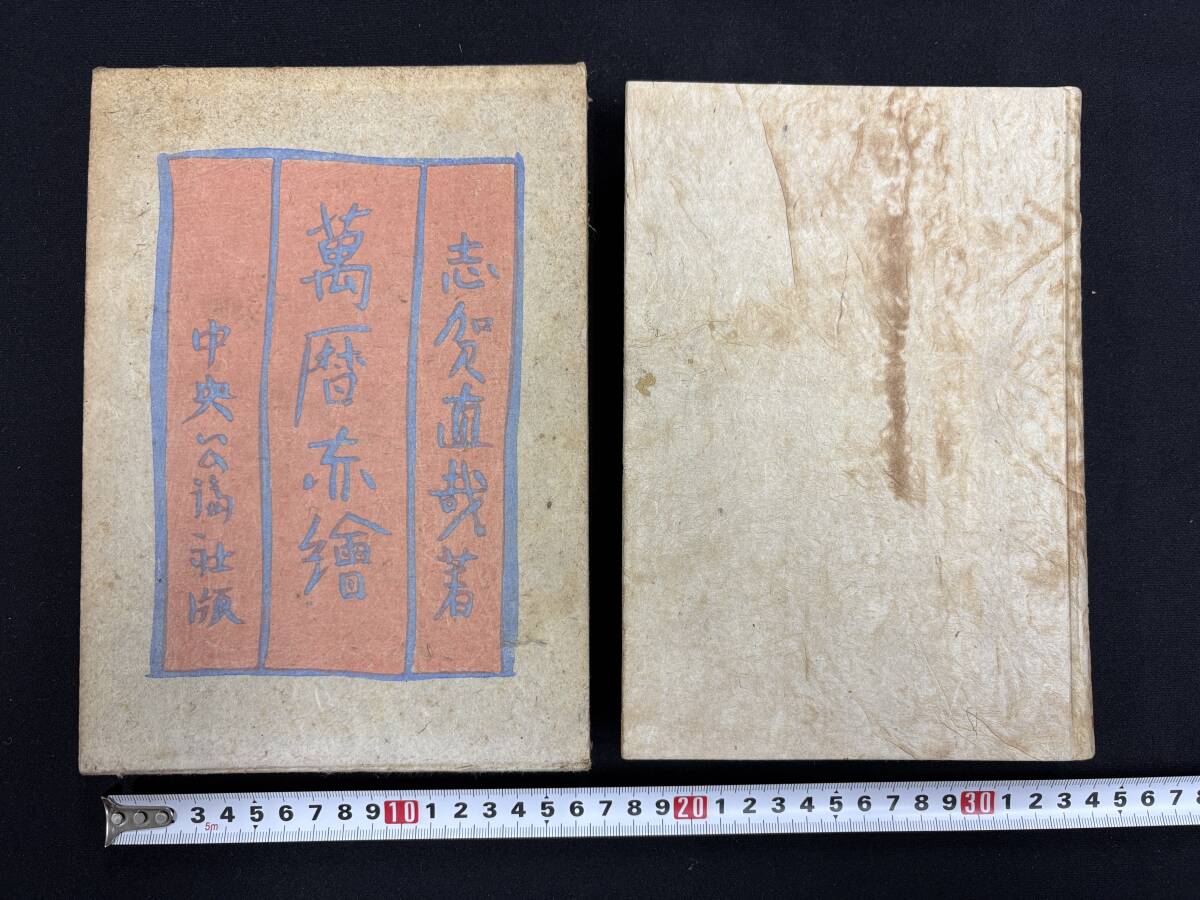 志賀直哉著
萬暦赤繪
中央公論社版
3 4 5 6 7 8 9 10 1 2 3 4 5 6 7 8 9 20 1 2 3 4 5 6 7 8 9 30 1 2 3 4 5 6 7 8
5m